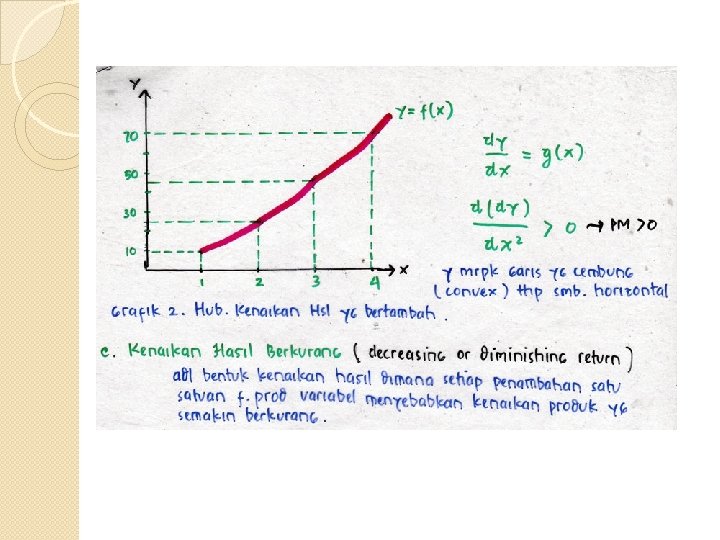 Y
Y = f(x)
70
50
30
10
1 2 3 4 X
dY/dx = g(x)
d(dY)/dx² > 0 → PM > 0
Y mrpk garis yg cembung
(convex) thp smb. horizontal
Grafik 2. Hub. Kenaikan Hsl yg bertambah.
c. Kenaikan Hasil Berkurang ( decreasing or Diminishing return )
adl bentuk kenaikan hasil dimana setiap penambahan satu
satuan f. prod variabel menyebabkan kenaikan produk yg
semakin berkurang.